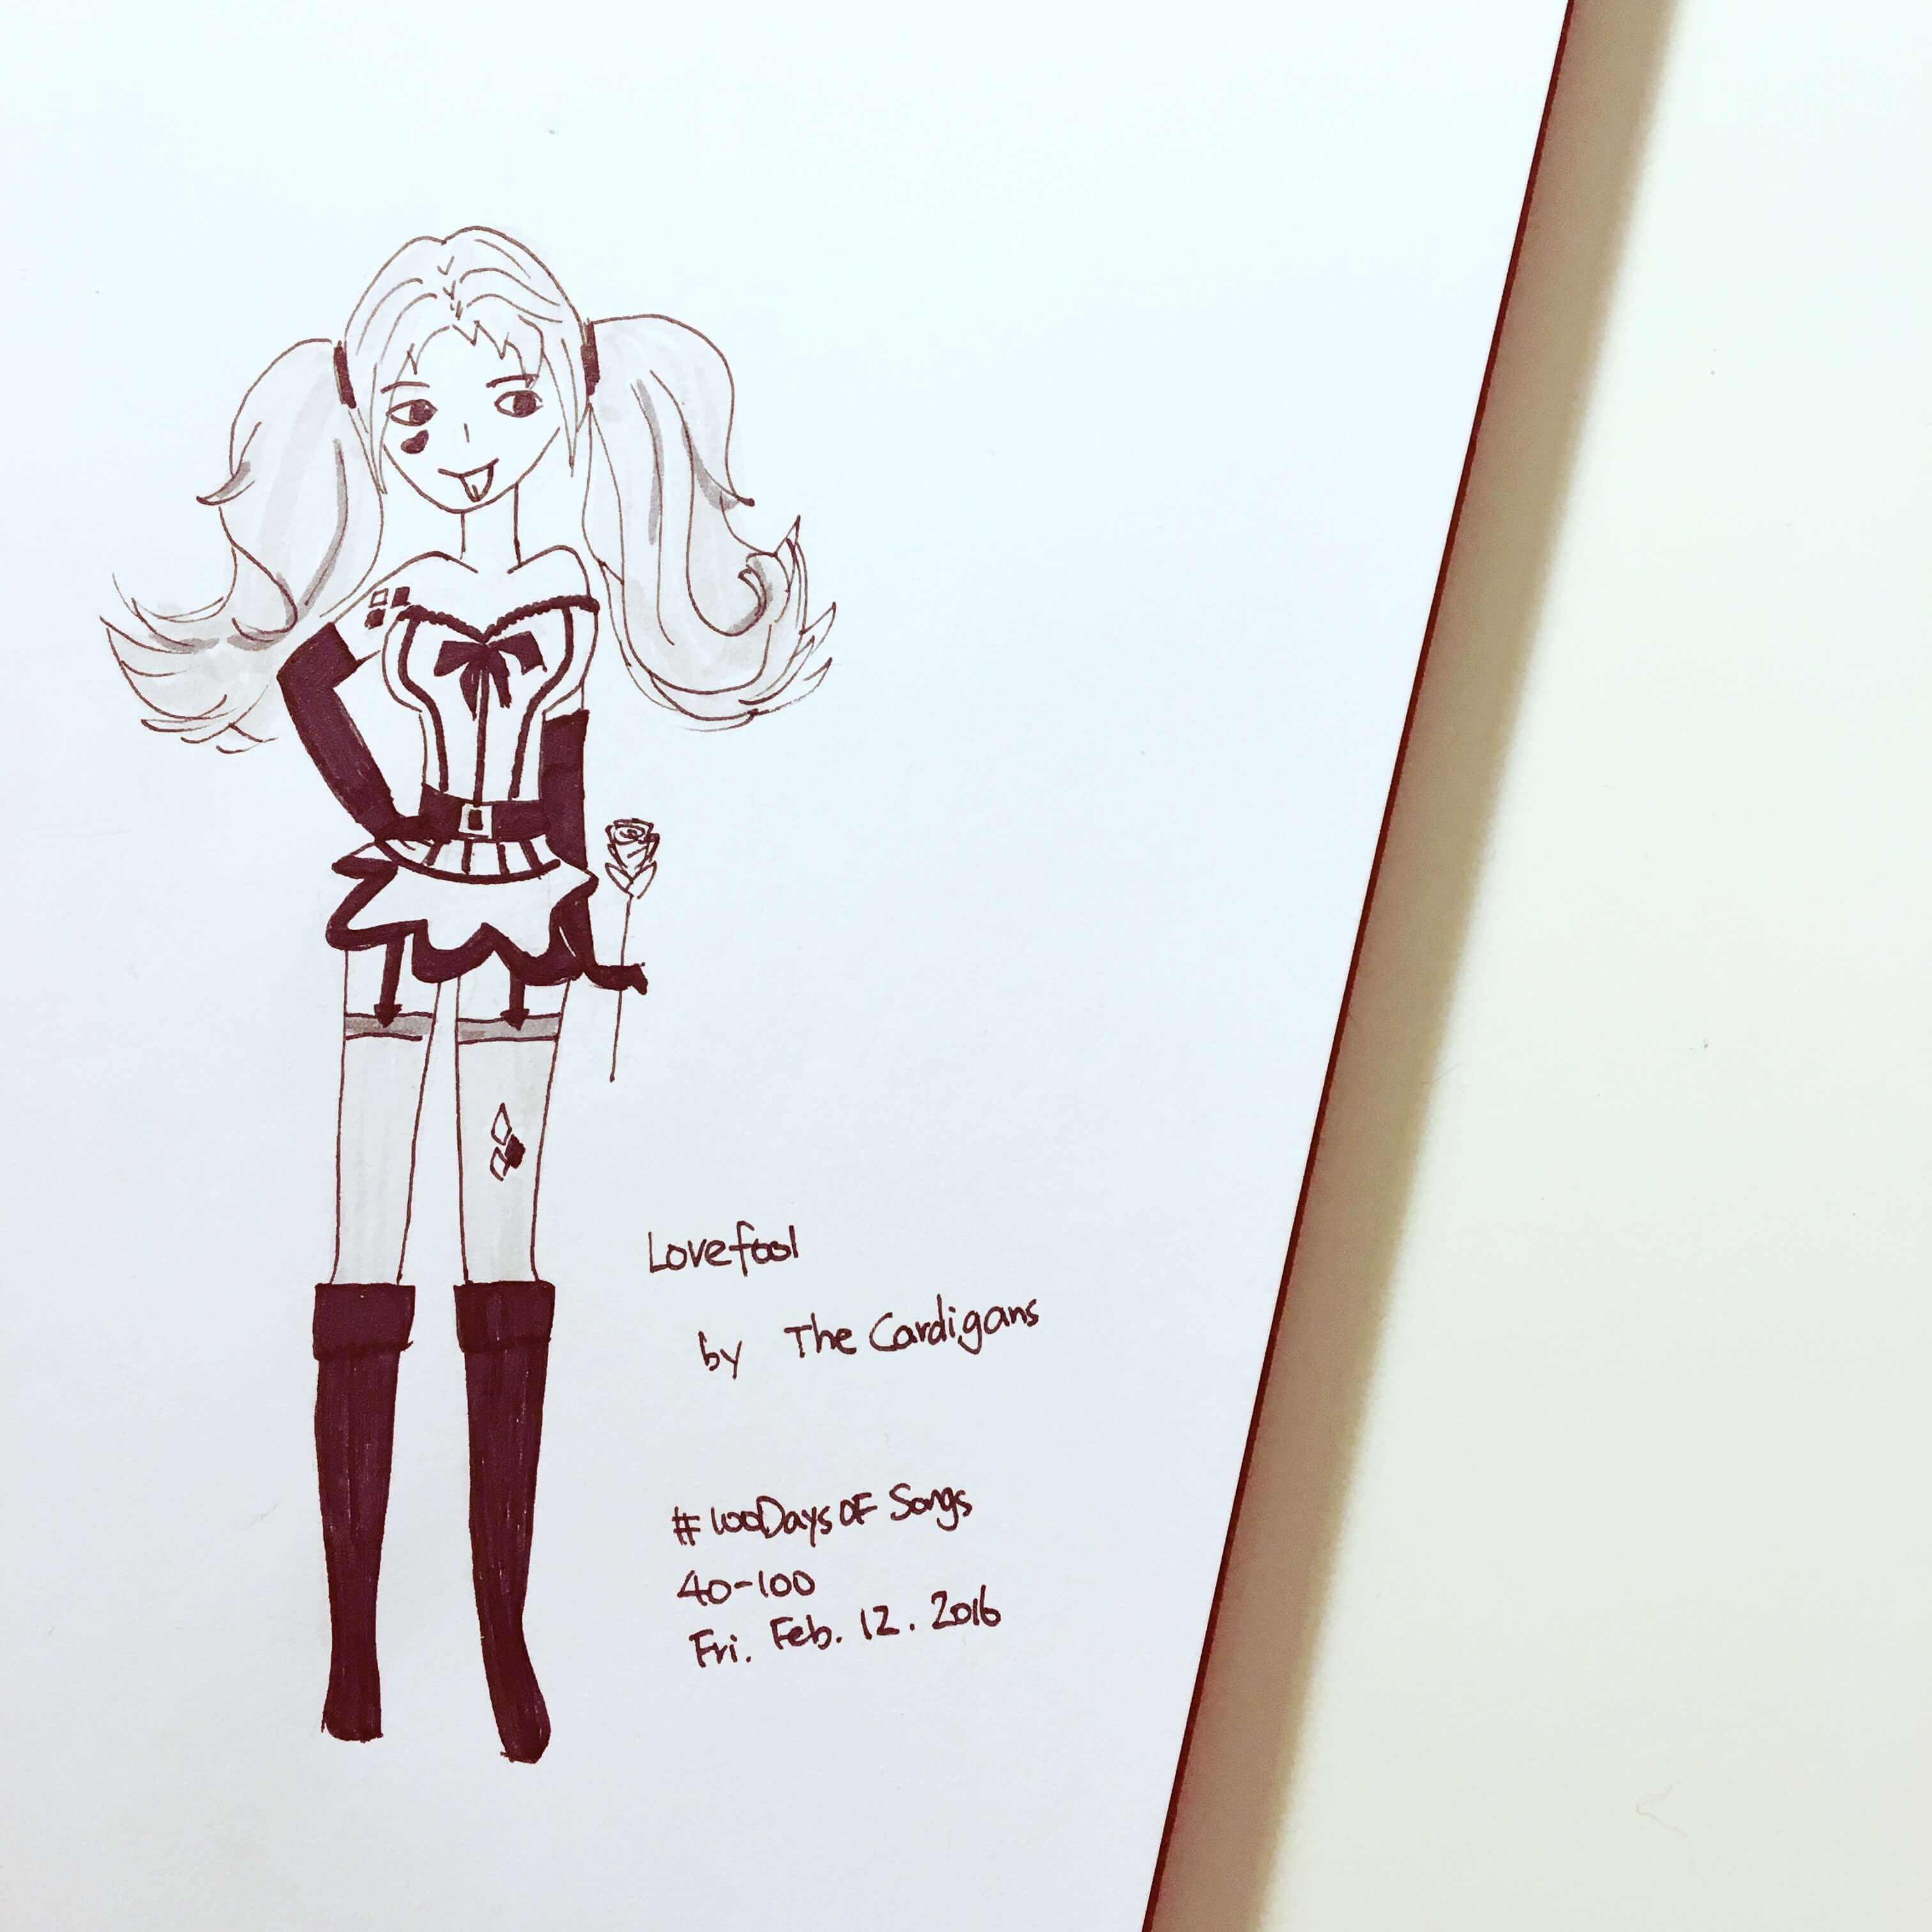 Lovefool
by The Cardigans
#100DaysOF Songs
40-100
Fri. Feb. 12. 2016